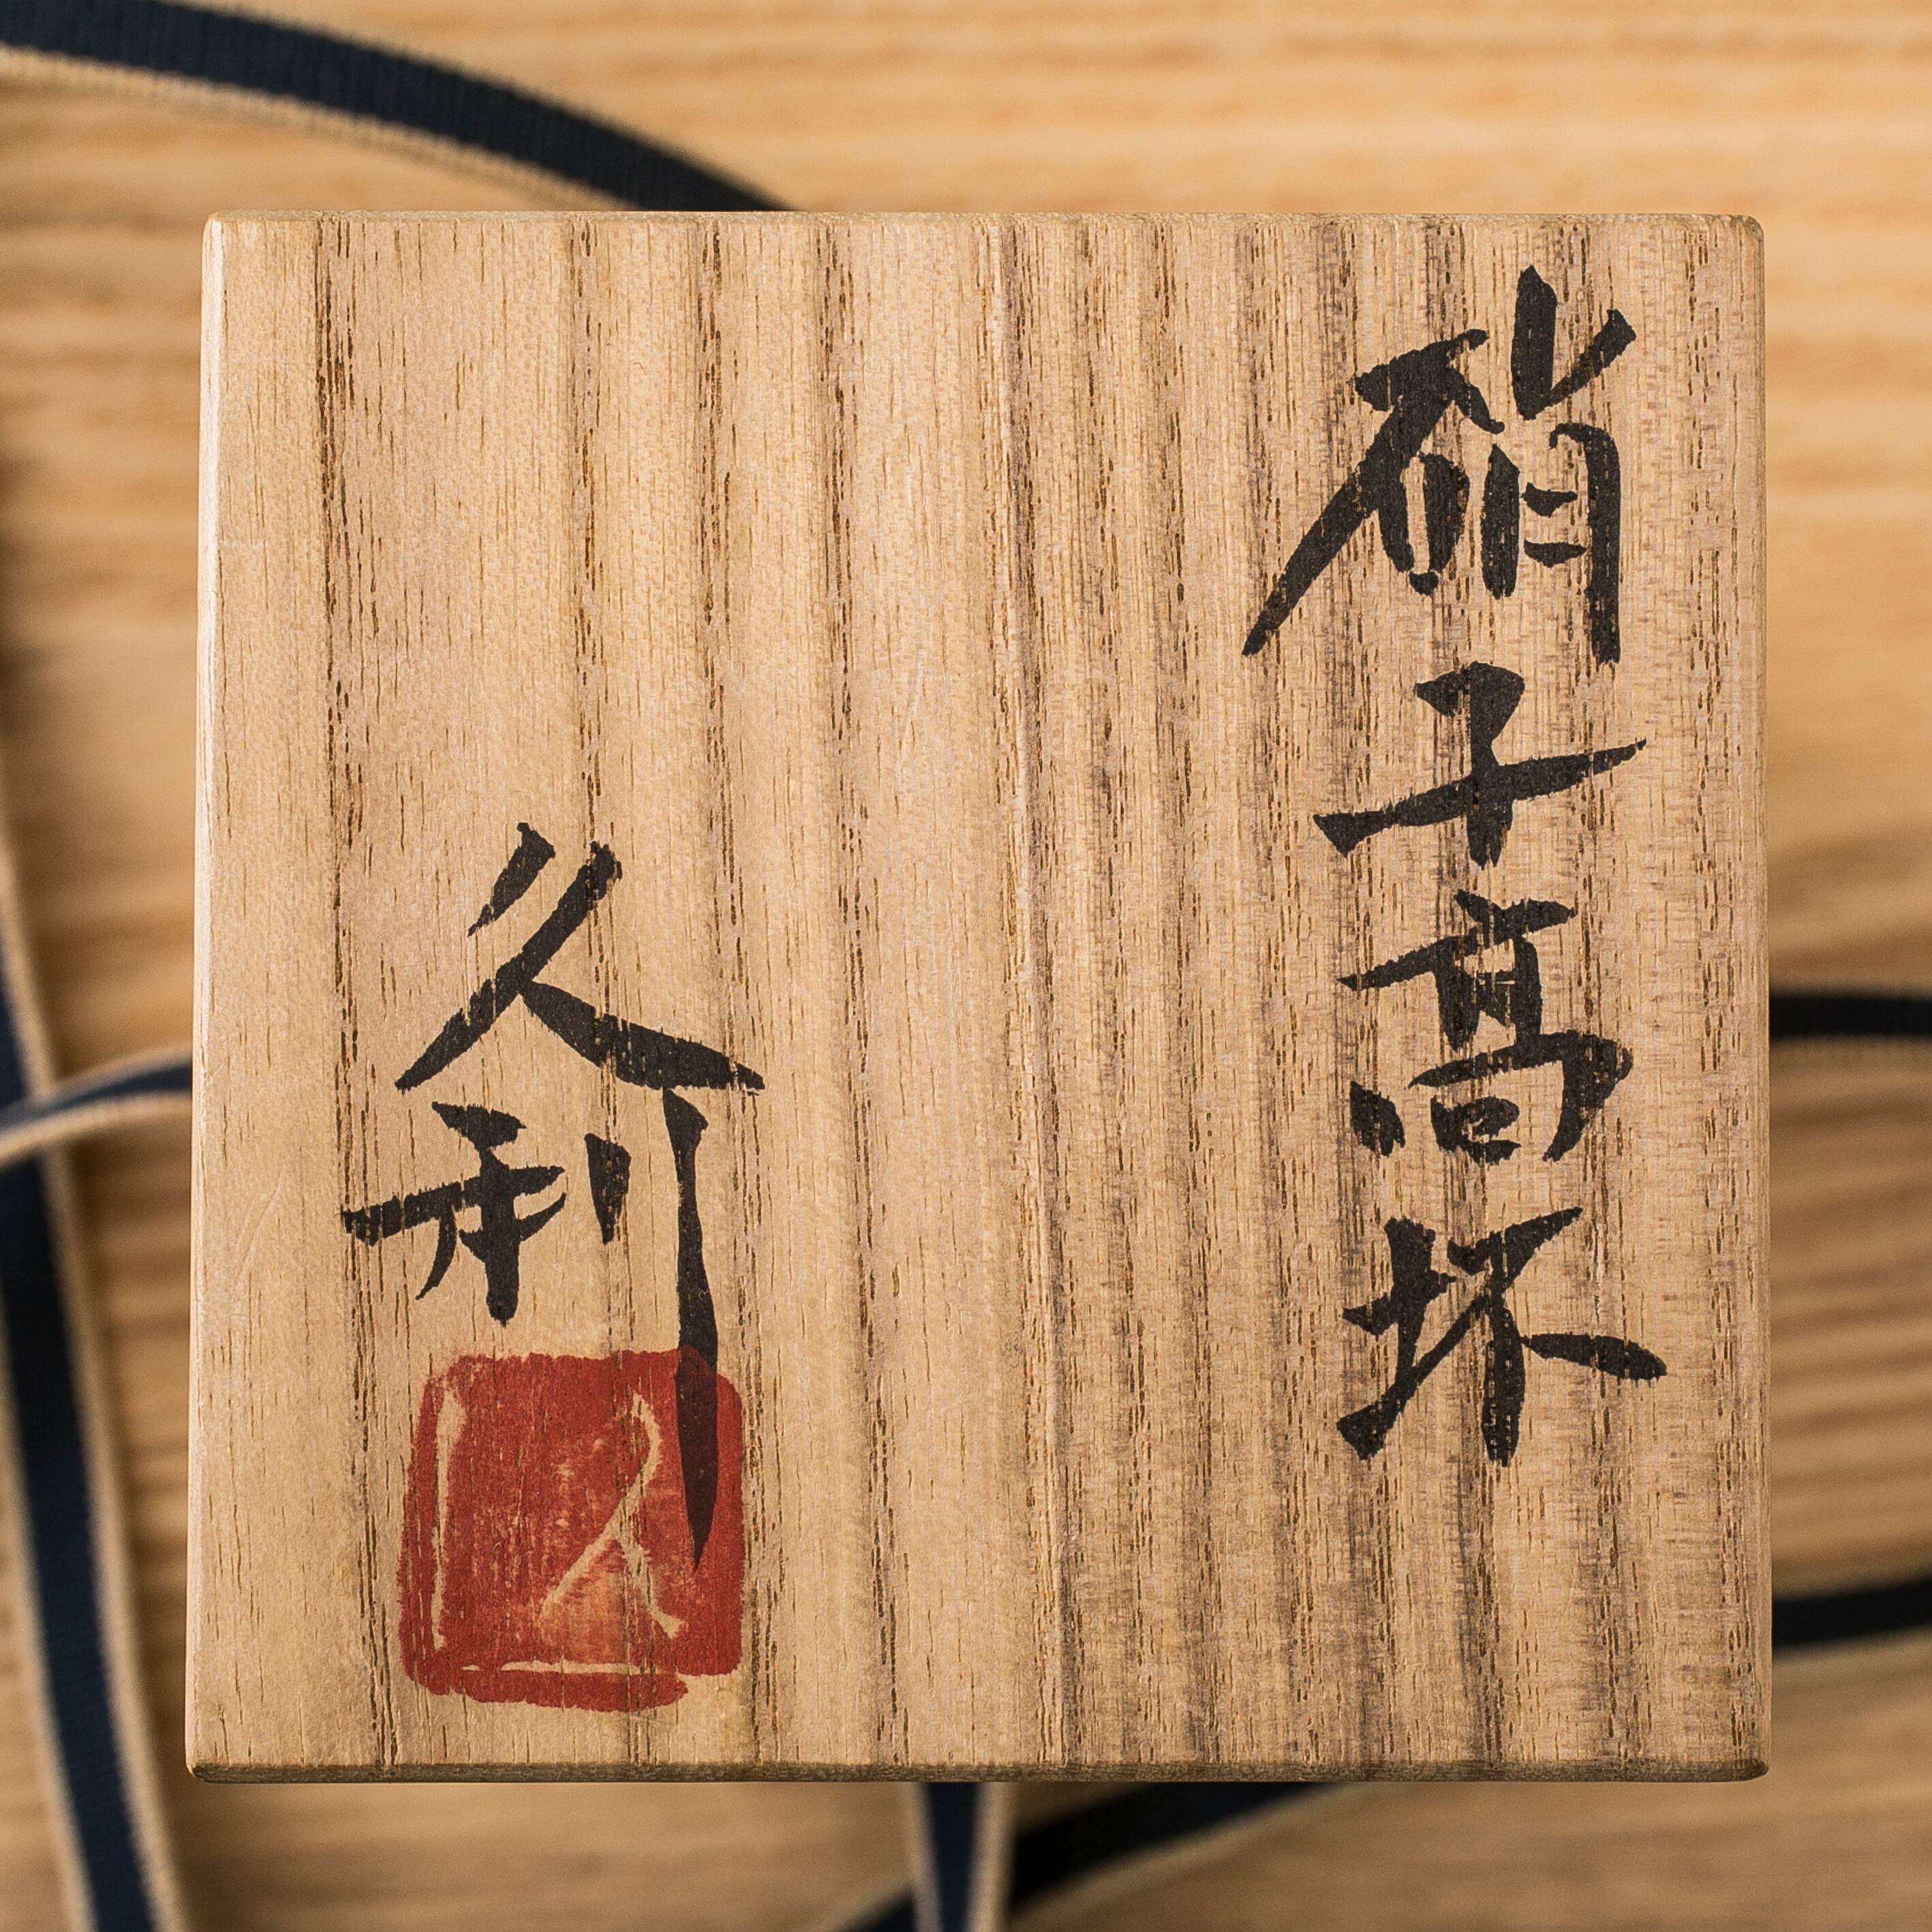 硝子高坏
久利
久